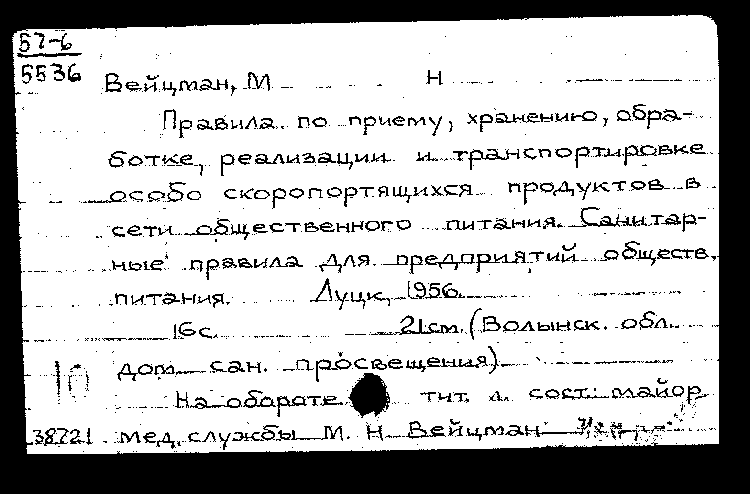 57-6
5536
Вейцман, М Н
Правила по приему, хранению, обра-
ботке, реализации и транспортировке
особо скоропортящихся продуктов в
сети общественного питания. Санитар-
ные правила для предприятий обществ.
питания. Луцк, 1956.
16 с. 21 см. (Волынск. обл.
дом сан. просвещения).
10
На обарате тит. л. сост.: майор
38721 мед. службы М. Н. Вейцман